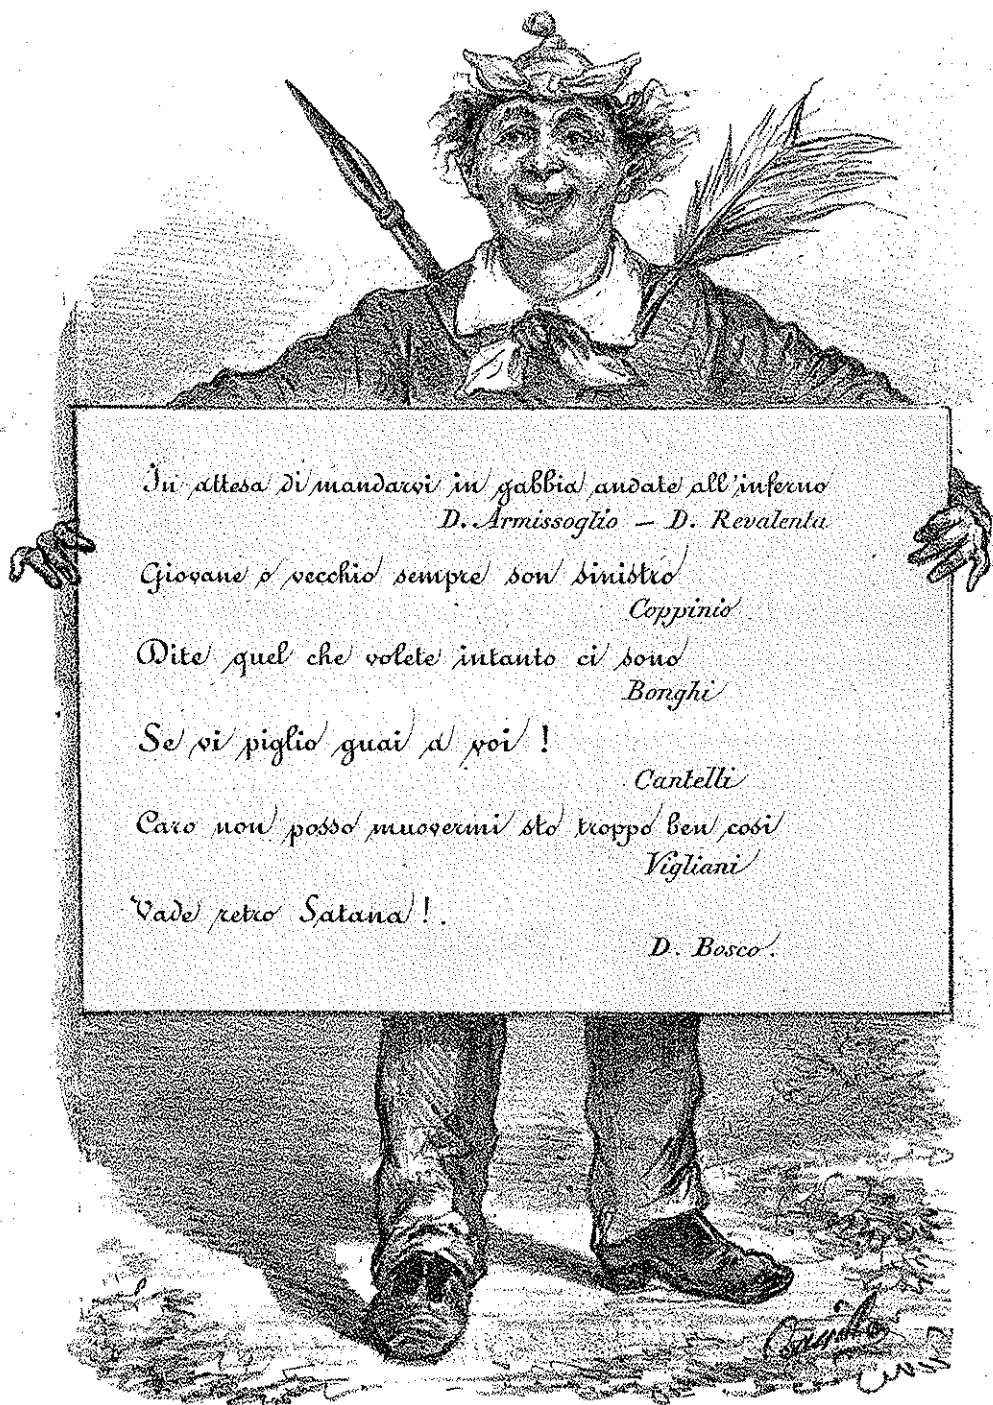 In attesa di mandarvi in gabbia andate all'inferno
D. Armissoglio — D. Revalenta
Giovane o vecchio sempre son sinistro
Coppinio
Dite quel che volete intanto ci sono
Bonghi
Se vi piglio guai a voi !
Cantelli
Caro non posso muovermi sto troppo ben cosi
Vigliani
Vade retro Satana ! .
D. Bosco .